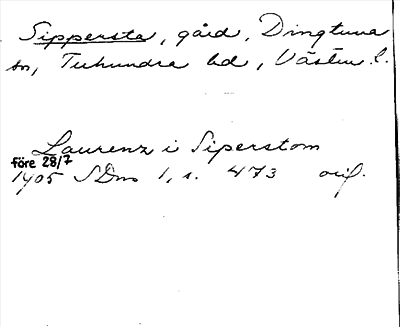 Sippersta, gård, Dingtuna
sn, Tuhundra hd, Västm. l.
Laurenz i Siperstom
före 28/7
1405 SDns 1, s. 473 orig.